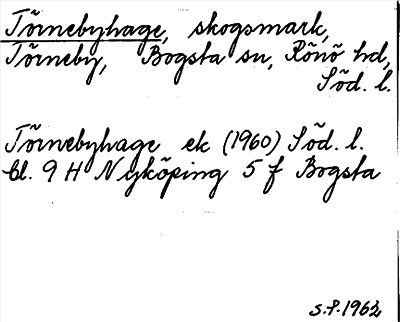 Törnebyhage, skogsmark,
Törneby, Bogsta sn, Rönö hd,
Söd. l.
Törnebyhage ek (1960) Söd. l.
bl. 9 H Nyköping 5 f Bogsta
S.P. 1962